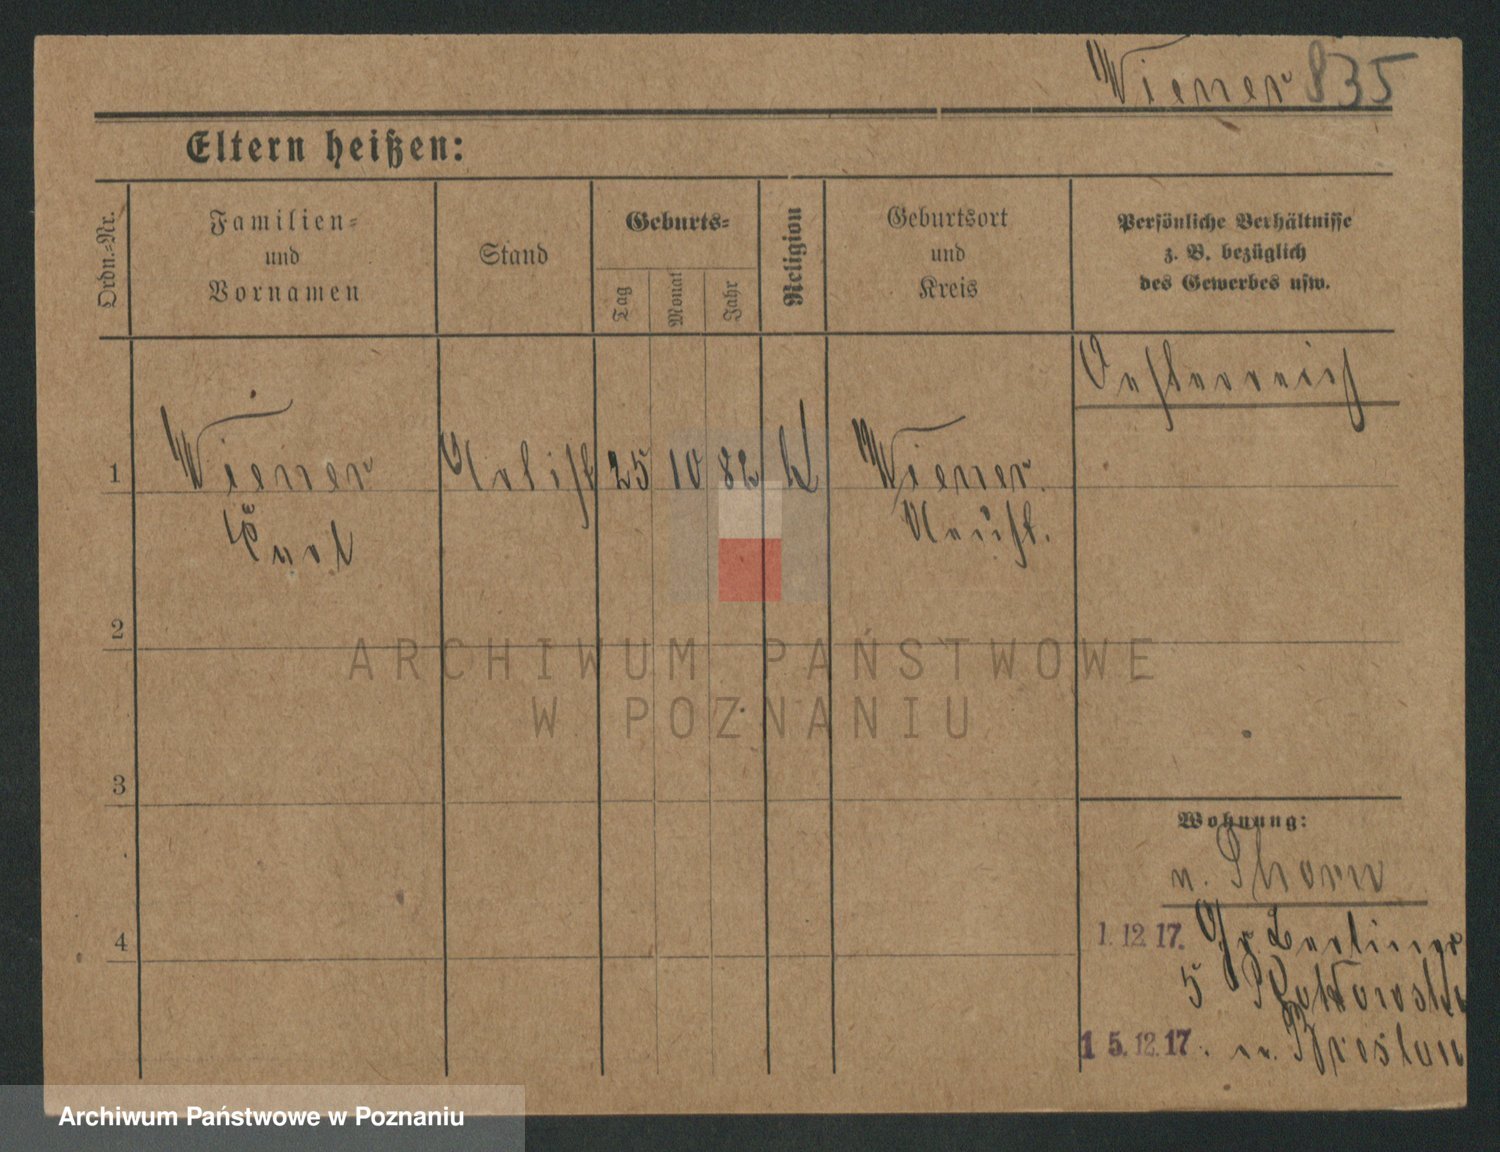 Wiener 835
Eltern heißen:
Ordn.=Nr.
Familien=
und
Vornamen
Stand
Geburts=
Tag
Monat
Jahr
Religion
Geburtsort
und
Kreis
Persönliche Verhältnisse
z. B. bezüglich
des Gewerbes usw.
Oesterreich
1 Wiener Artist 25 10 82 k Wiener
Neust.
2
3
4
ARCHIWUM PAŃSTWOWE
W POZNANIU
Wohnung:
n. Thorn
1.12.17. Gr. Berliner
5
15.12.17. n. Breslau
Archiwum Państwowe w Poznaniu